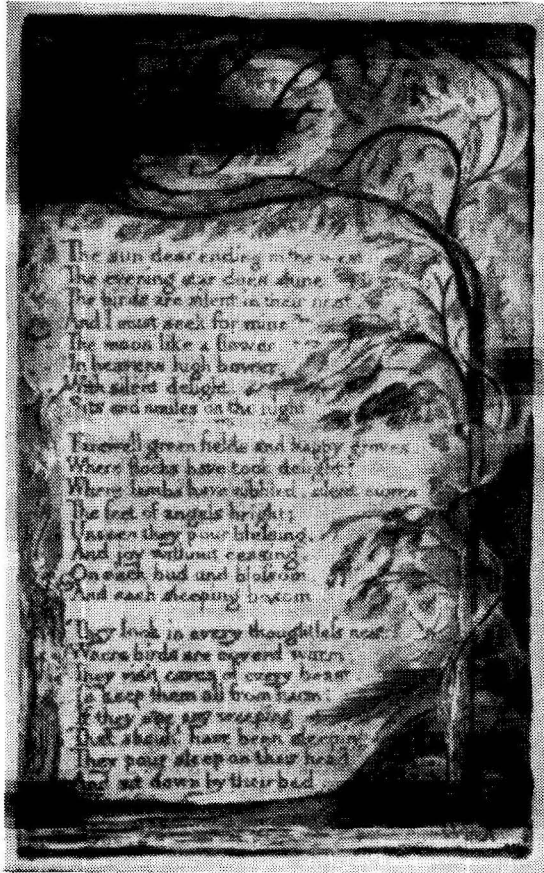 The sun descending in the west
The evening star does shine
The birds are silent in their nest
And I must seek for mine
The moon like a flower
In heavens high bower
With silent delight
Sits and smiles on the night
Farewell green fields and happy groves
Where flocks have took delight
Where lambs have nibbled, silent moves
The feet of angels bright;
Unseen they pour blessing,
And joy without ceasing
On each bud and blossom
And each sleeping bosom
They look in every thoughtless nest
Where birds are coverd warm
They visit caves of every beast
To keep them all from harm:
If they see any weeping
That should have been sleeping
They pour sleep on their head
And sit down by their bed